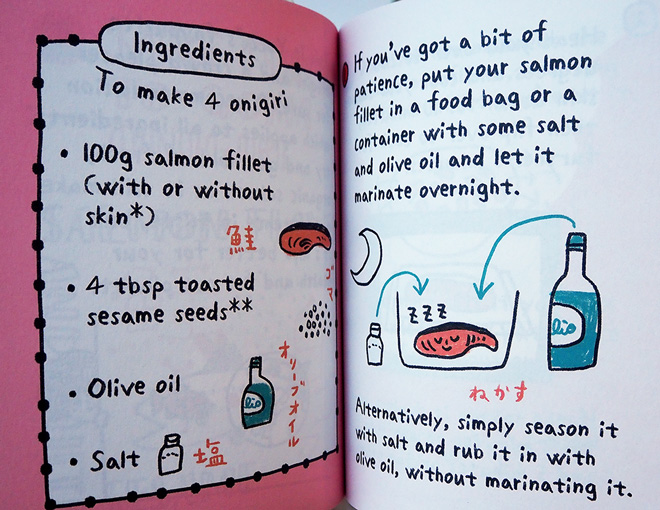 Ingredients
To make 4 onigiri
• 100g salmon fillet
(with or without
skin*)
鮭
• 4 tbsp toasted
sesame seeds**
ゴマ
• Olive oil
olio
オリーブオイル
• Salt
塩
If you've got a bit of
patience, put your salmon
fillet in a food bag or a
container with some salt
and olive oil and let it
marinate overnight.
zzz
olio
ねかす
Alternatively, simply season it
with salt and rub it in with
olive oil, without marinating it.